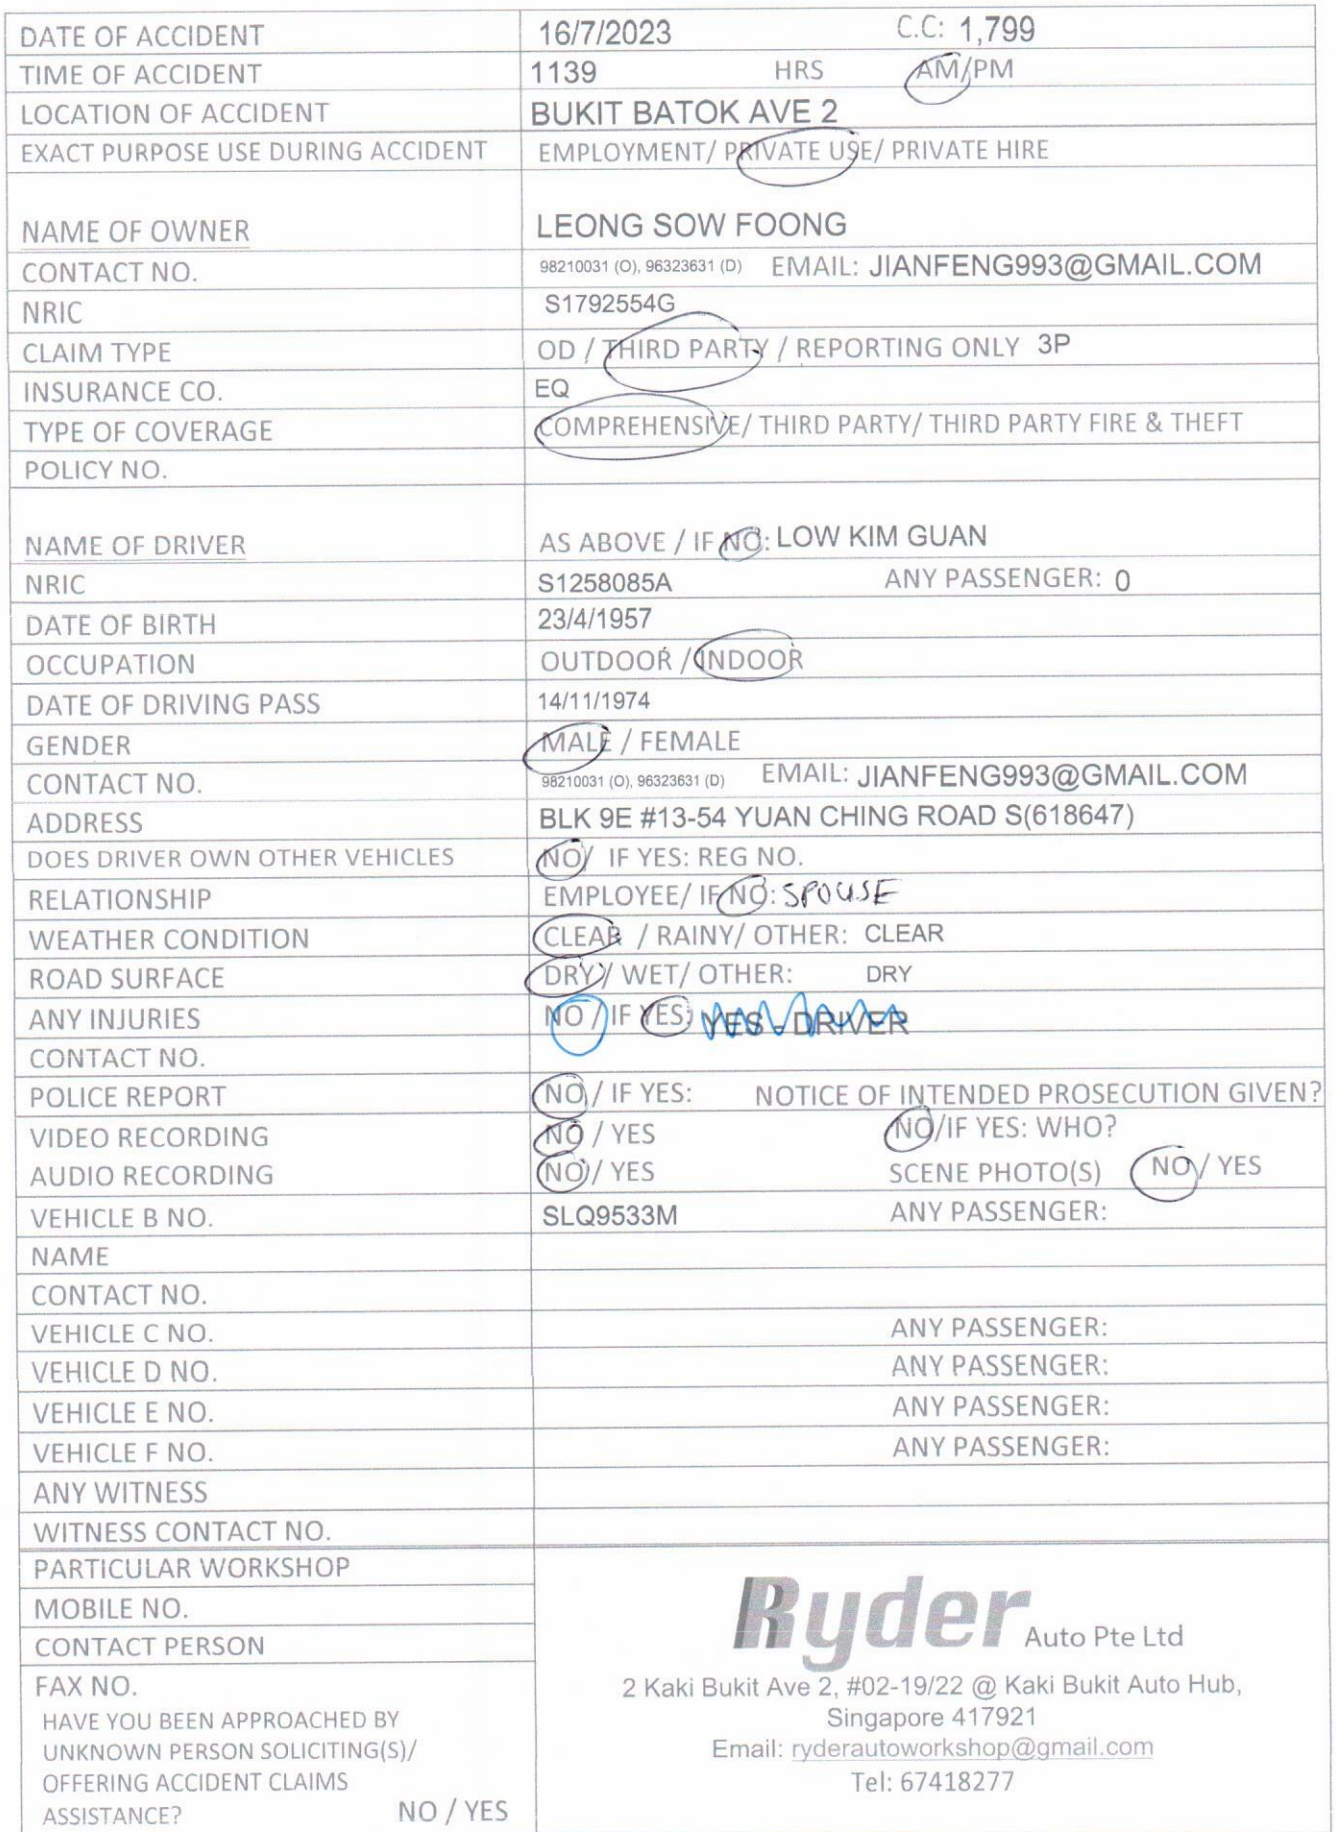 DATE OF ACCIDENT 16/7/2023 C.C: 1,799
TIME OF ACCIDENT 1139 HRS AM/PM
LOCATION OF ACCIDENT BUKIT BATOK AVE 2
EXACT PURPOSE USE DURING ACCIDENT EMPLOYMENT/ PRIVATE USE/ PRIVATE HIRE
NAME OF OWNER LEONG SOW FOONG
CONTACT NO. 98210031 (O), 96323631 (D) EMAIL: JIANFENG993@GMAIL.COM
NRIC S1792554G
CLAIM TYPE OD / THIRD PARTY / REPORTING ONLY 3P
INSURANCE CO. EQ
TYPE OF COVERAGE COMPREHENSIVE/ THIRD PARTY/ THIRD PARTY FIRE & THEFT
POLICY NO.
NAME OF DRIVER AS ABOVE / IF NO: LOW KIM GUAN
NRIC S1258085A ANY PASSENGER: 0
DATE OF BIRTH 23/4/1957
OCCUPATION OUTDOOR / INDOOR
DATE OF DRIVING PASS 14/11/1974
GENDER MALE / FEMALE
CONTACT NO. 98210031 (O), 96323631 (D) EMAIL: JIANFENG993@GMAIL.COM
ADDRESS BLK 9E #13-54 YUAN CHING ROAD S(618647)
DOES DRIVER OWN OTHER VEHICLES NO/ IF YES: REG NO.
RELATIONSHIP EMPLOYEE/ IF NO: SPOUSE
WEATHER CONDITION CLEAR / RAINY/ OTHER: CLEAR
ROAD SURFACE DRY/ WET/ OTHER: DRY
ANY INJURIES NO / IF YES: YES - DRIVER
CONTACT NO.
POLICE REPORT NO / IF YES: NOTICE OF INTENDED PROSECUTION GIVEN?
VIDEO RECORDING NO / YES NO/IF YES: WHO?
AUDIO RECORDING NO / YES SCENE PHOTO(S) NO / YES
VEHICLE B NO. SLQ9533M ANY PASSENGER:
NAME
CONTACT NO.
VEHICLE C NO. ANY PASSENGER:
VEHICLE D NO. ANY PASSENGER:
VEHICLE E NO. ANY PASSENGER:
VEHICLE F NO. ANY PASSENGER:
ANY WITNESS
WITNESS CONTACT NO.
PARTICULAR WORKSHOP
MOBILE NO.
CONTACT PERSON
FAX NO.
HAVE YOU BEEN APPROACHED BY
UNKNOWN PERSON SOLICITING(S)/
OFFERING ACCIDENT CLAIMS
ASSISTANCE? NO / YES
Ryder Auto Pte Ltd
2 Kaki Bukit Ave 2, #02-19/22 @ Kaki Bukit Auto Hub,
Singapore 417921
Email: ryderautoworkshop@gmail.com
Tel: 67418277